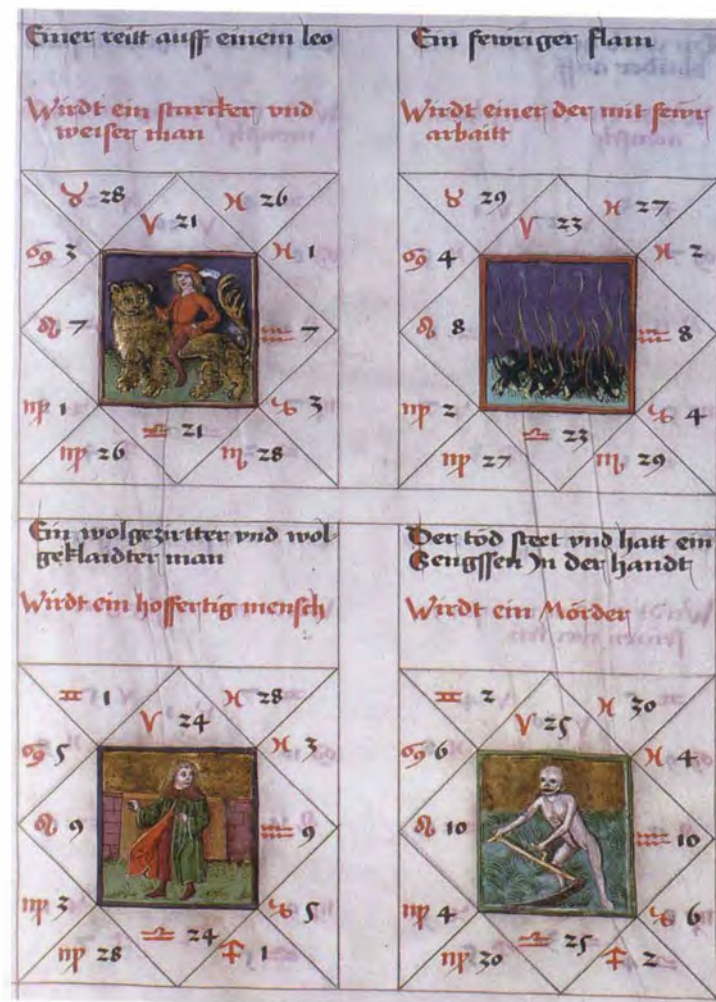 Einer reitt auff einem leo
Wirdt ein starcker vnd
weiser man
♉ 28
♈ 21
♓ 26
♋ 3
♓ 1
♌ 7
♒ 7
♍ 1
♑ 3
♍ 26
♎ 21
♏ 28
Ein fewriger flam
Wirdt einer der mit fewr
arbaitt
♉ 29
♈ 23
♓ 27
♋ 4
♓ 2
♌ 8
♒ 8
♍ 2
♑ 4
♍ 27
♎ 23
♏ 29
Ein wolgezirtter vnd wol
geklaidter man
Wirdt ein hoffertig mensch
♊ 1
♈ 24
♓ 28
♋ 5
♓ 3
♌ 9
♒ 9
♍ 3
♑ 5
♍ 28
♎ 24
♐ 1
Der tod steet vnd hatt ein
Sengssen Jn der handt
Wirdt ein Mörder
♊ 2
♈ 25
♓ 30
♋ 6
♓ 4
♌ 10
♒ 10
♍ 4
♑ 6
♍ 30
♎ 25
♐ 2